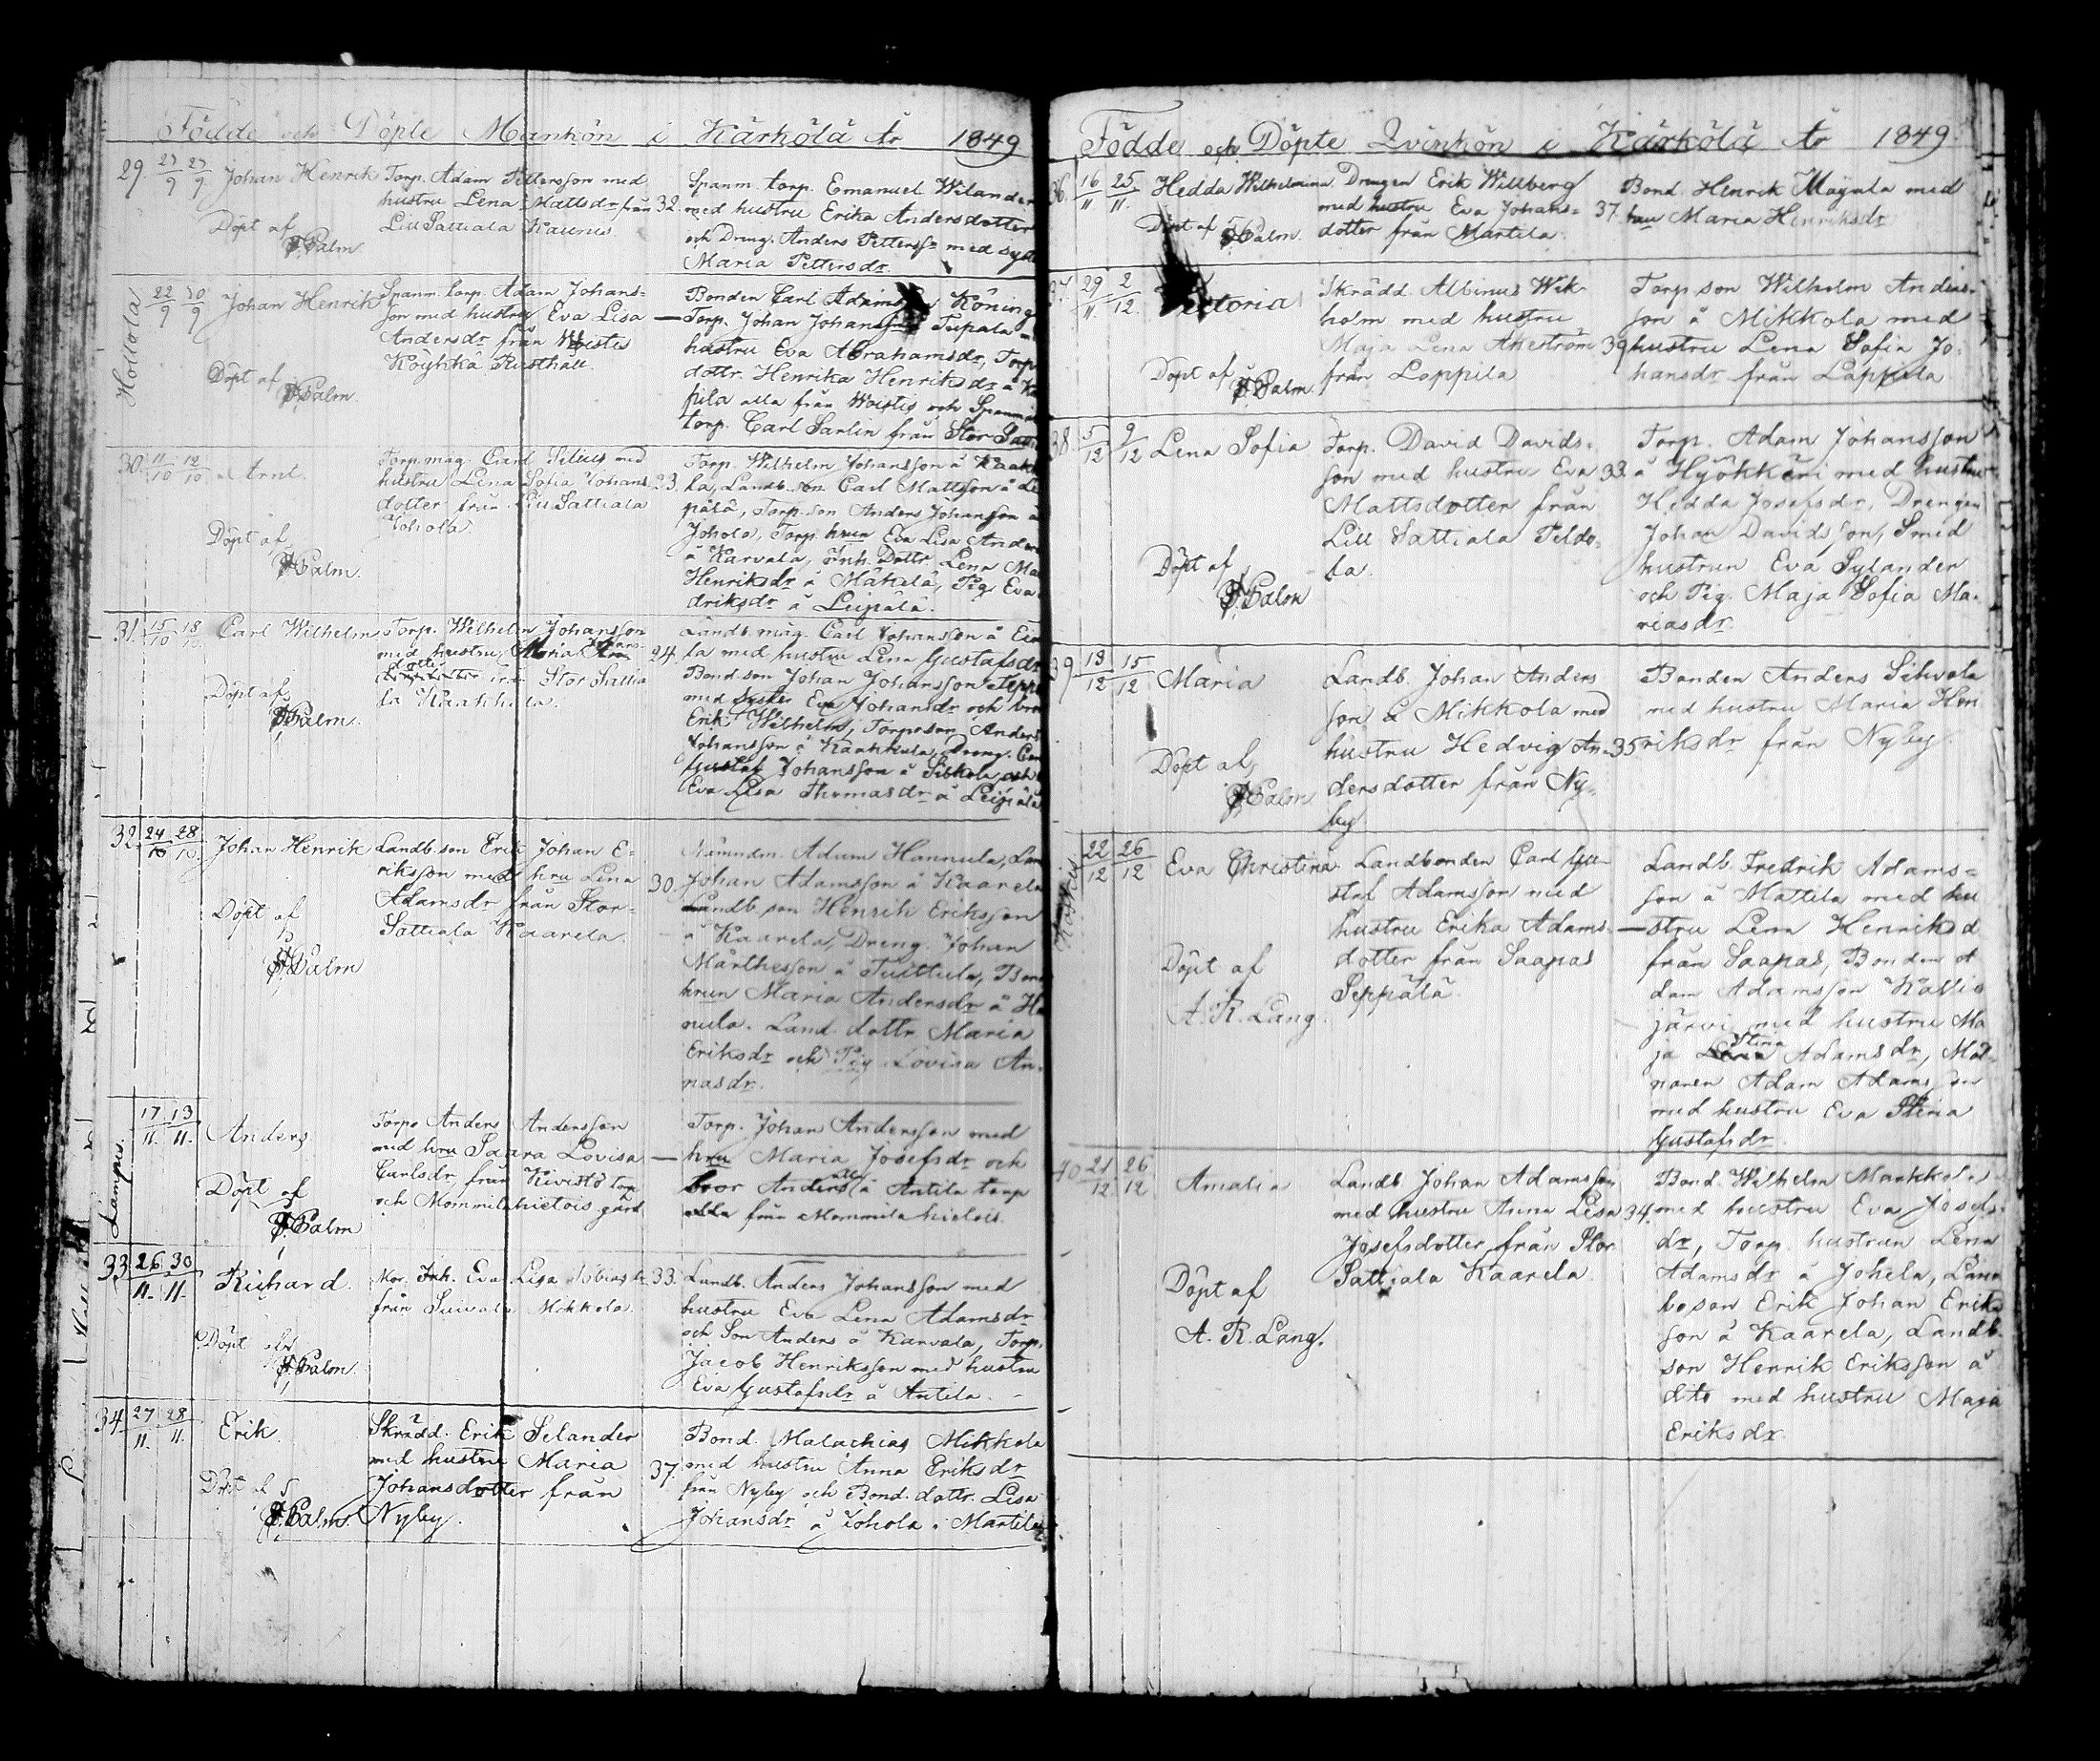 Födde och Döpte Mankön i Kärkölä År 1849
29. 27/9 27/9 Johan Henrik
Döpt af
Palm
Torp. Adam Pettersson med
hustru Lena Mattsdr från
Lill Sattiala Kaunis
32.
Spanm. torp. Emanuel Wilander
med hustru Erika Andersdotter
och Dreng. Anders Pettersson med
Maria Pettersdr.
Hollola
22/9 30/9 Johan Henrik
Döpt af
Palm.
Spanm. torp. Adam Johans-
son med hustru Eva Lisa
Andersdr från Woistis
Köykkä Rusthåll.
—
Bonden Carl Adamsson Köning
Torp. Johan Johansson Tupala
hustru Eva Abrahamsdr, Torp
dottr. Henrika Henriksdr å
pila alla från Woistis och Spanm
torp. Carl Sarlin från Stor
30. 11/10 12/10 Arnt.
Döpt af
Palm.
Torp.måg Carl Silius med
hustru Lena Sofia Johans
dotter från Lill Sattiala
Johola.
23.
Torp. Wilhelm Johansson å
la, Landb. son Carl Mattsson å Le
pälä, Torp. son Anders Johansson å
Johola, Torp. hrun Eva Lisa Anders
å Karvala, Inh. Dottr Lena Ma
Henriksdr å Mäkelä, Pig. Eva
driksdr å Leipälä.
31. 15/10 18/10 Carl Wilhelm
Döpt af
Palm.
Torp. Wilhelm Johansson
med hustru Maria Johans-
dotter från Stor Sattia
la Kaakkola.
24.
Landb. måg. Carl Johansson å
la med hustru Lena Gustafsdr
Bond. son Johan Johansson
med syster Eva Johansdr och
Erik Wilhelm, Torpson Anders
Johansson å Kaakkula, Dreng.
Gustaf Johansson å och
Eva Lisa Thomasdr å Leipälä
32. 24/10 28/10 Johan Henrik
Döpt af
Palm
Landb. son Erik Johan E-
riksson med hru Lena
Adamsdr från Stor-
Sattiala Kaarela.
30.
Nämndm. Adam Hannula,
Johan Adamsson å Kaarela
Landb. son Henrik Eriksson
å Kaarela, Dreng. Johan
Märthesson å Tuittula,
hrun Maria Andersdr å
nula. Land. dottr Maria
Eriksdr och Pig Lovisa An-
nasdr.
Lampis.
17/11. 13/11. Anders
Döpt af
Palm
Torp. Anders Andersson
med hru Saara Lovisa
Carlsdr från Kivistö torp
och Mommilahietois gård
—
Torp. Johan Andersson med
hru Maria Josefsdr och
bror Anders å Antila torp
alla från Mommila hietois.
33. 26/11. 30/11. Richard.
Döpt af
Palm.
Inh. Eva Lisa
från Mikkola.
33.
Landb. Anders Johansson med
hustru Eva Lena Adamsdr
och Son Anders å Karvala, Torp.
Jacob Henriksson med hustru
Eva Gustafsdr å Antila.
34. 27/11. 28/11. Erik.
Döpt af
Palm.
Skrädd. Erik Selander
med hustru Maria
Johansdotter från
Nyby.
37.
Bond. Malachias Mikkola
med hustru Anna Eriksdr
från Nyby och Bond. dottr. Lisa
Johansdr å Johola i Martila.
Födde och Döpte Qvinkön i Kärkölä År 1849.
36. 16/11 25/11. Hedda Wilhelmina
Döpt af Palm.
Drengen Erik Willberg
med hustru Eva Johans-
dotter från Martila
37.
Bond. Henrik Mayala med
hru Maria Henriksdr
37. 29/11. 2/12. Victoria
Döpt af
Palm
Skrädd. Albinus Wik-
holm med hustru
Maja Lena Åkeström
från Lappila
39.
Torp son Wilhelm Anders-
son å Mikkola med
hustru Lena Sofia Jo-
hansdr från Lappila
38. 5/12 9/12 Lena Sofia
Döpt af
Palm
Torp. David Davids-
son med hustru Eva
Mattsdotter från
Lill Sattiala Peldo-
la.
33.
Torp. Adam Johansson
å Hyökkäri med hustru
Hedda Josefsdr, Drengen
Johan Davidsson, Smed
hustrun Eva Sylander
och Pig. Maja Sofia Ma-
riasdr.
39. 13/12 15/12 Maria
Döpt af
Palm
Landb. Johan Anders
son å Mikkola med
hustru Hedvig An-
dersdotter från Ny-
by
35
Bonden Anders Sihvola
med hustru Maria Hen
riksdr från Nyby.
Koskis
22/12 26/12 Eva Christina
Döpt af
A. R. Lang.
Landbonden Carl Gu-
staf Adamsson med
hustru Erika Adams-
dotter från Saapas
Seppälä.
—
Landb. Fredrik Adams-
son å Mattila med hu
stru Lena Henriksd
från Saapas, Bonden A
dam Adamsson Kallio
järvi med hustru Ma
ja Stina Adamsdr, Möl-
naren Adam Adamsson
med hustru Eva Stina
Gustafsdr.
40. 21/12. 26/12 Amalia
Döpt af
A. R. Lang.
Landb Johan Adamsson
med hustru Anna Lisa
Josefsdotter från Stor
Sattiala Kaarela.
34.
Bond. Wilhelm Markkola
med hustru Eva Josefs-
dr, Torp. hustrun Lena
Adamsdr å Johela, Land
boson Erik Johan Eriks
son å Kaarela, Landb.
son Henrik Eriksson å
dito med hustru Maja
Eriksdr.